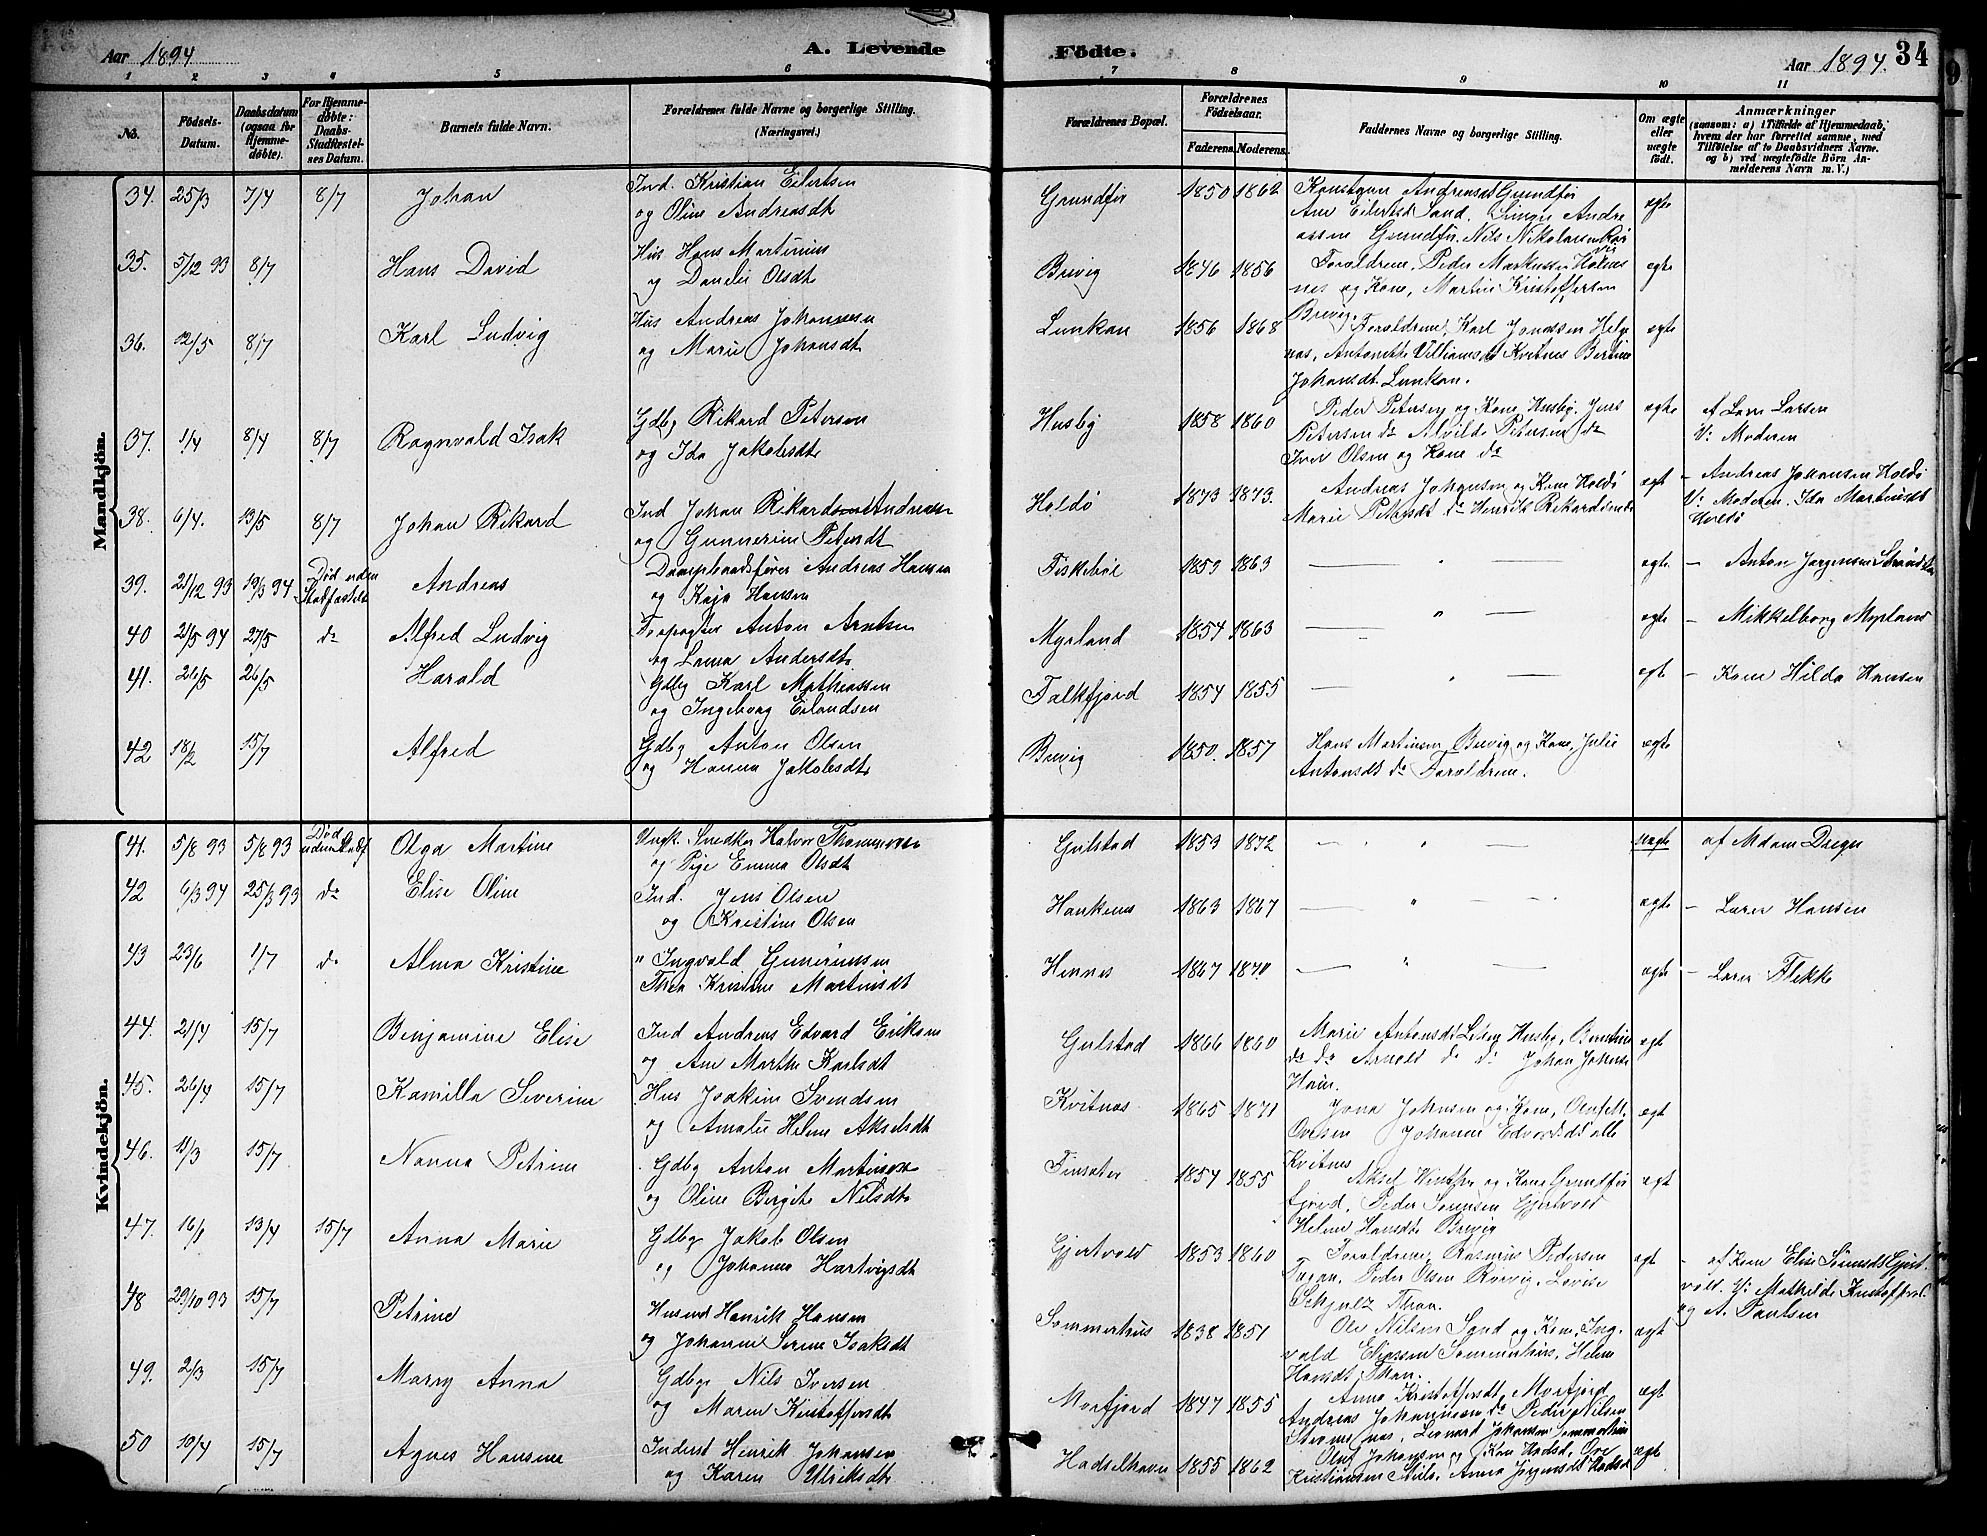 Aar 1894
A. Levende
Födte.
Aar 1894.
34
1 2 3 4 5 6 7 8 9 10 11
No.
Födsels-Datum.
Daabsdatum (ogsaa for Hjemmedöbte).
For Hjemmedöbte: Daabs-Stadfæstelses Datum.
Barnets fulde Navn.
Forældrenes fulde Navne og borgerlige Stilling. (Næringsvei.)
Forældrenes Bopæl.
Forældrenes Födselsaar.
Faderens. Moderens.
Faddernes Navne og borgerlige Stilling.
Om ægte eller uægte födt.
Anmærkninger (saasom: a) i Tilfælde af Hjemmedaab, hvem der har forrettet samme, med Tilföielse af to Daabsvidners Navne. og b) ved uægtefödte Börn Anmelderens Navn m. V.)
Mandkjön.
34. 25/3 7/4 8/7 Johan
Ind. Kristian Eilertsen
og Oline Andreasdt
Grundfør 1850 1862
Andreasdt Grundfør
Ane Eilertsdt Sand. Andre
assen Grundfør. Nils Nikolaisen
ægte
35. 5/12 93 8/7 Hans David
Hus Hans Martinius
og Danelie Olsdt
Brevig 1846 1856
Forældrene, Peder Markussen
nes og Kone, Martin Kristoffersen
Brevig.
egte
36. 12/5 8/7 Karl Ludvig
Hus Andreas Johannesen
og Marie Johansdt
Lunkan 1856 1868
Forældrene, Karl Jonassen Helg
nes, Antonette Villiamsdt Kvitnes Bertine
Johansdt Lunkan.
egte
37. 1/4 8/4 8/7 Ragnvald Isak
Gdbg Rikard Petersen
og Ida Jakobsdt
Husby 1858 1860
Peder Petersen og Kone, Husby. Jens
Petersen do Alvilde Petersen do
Iver Olsen og Kone do
egte
af Larsen
V: Moderen
38. 6/4. 13/5 8/7 Johan Rikard
Ind Johan Rikardsen Andreasen
og Gunnerine Petersdt
Holdø 1873 1873.
Andreas Johansen og Kone Holdø
Marie Petersdt do Henrik Rikardsen do
egt
– Andreas Johansen Holdø
V: Moderen. Ida Martinsdt
Holdø
39. 21/12 93 19/3 94 Død uden Stadfæstelse
Andreas
Dampbaadsfører Andreas Hansen
og Kaja Hansen
Fiskebøl 1859 1863
— " —
egte
– Anton Jørgensen
40 21/5 94 27/5 do Alfred Ludvig
Forpagter Anton Arntsen
og Laura Andersdt
Myrland 1854 1863
— " —
egte
– Mikkelborg Myrland
41. 26/5 26/5 Harald
Gdbg Karl Mathiassen
og Ingeborg Erlandsen
Falkfjord 1854 1855
— " —
egte
– Kone Hilda Hansen
42 18/2 15/7 Alfred
Gdbg Anton Olsen
og Hanna Jakobsdt
Brevig 1850. 1857
Hans Martinsen Brevig og Kone, Julie
Antonsdt do Forældrene.
ægte
Kvindekjön.
41. 5/8 93 5/8 93 Død uden Stadf
Olga Martine
Ungk. Snedker Halvor Thomassen
og Pige Emma Olsdt
Gulstad 1853 1872
— " —
uægte
af Mdam Dreyer
42 6/3 94 25/3 93 do Elise Oline
Ind. Jens Olsen
og Kristine Olsen
Haukenes 1863 1867
— " —
ægte
– Lærer Hansen
43 23/6 1/7 do Alma Kristine
" Ingvald Guneriussen
Thea Kristine Martinsdt
Hennes 1867 1870
— " —
ægte
– Lærer Flekke
44. 21/4 15/7 Benjamine Elise
Ind Andreas Edvard Eriksen
og Ane Marthe Karlsdt
Gulstad 1866 1860
Marie Antonsdt Husby,
do do Arnold do do Johan Johansen
egt
45. 26/4 15/7 Kamilla Severine
Hus Joakim Svendsen
og Amalie Helene Akselsdt
Kvitnes 1865 1871
Jona Johnsen og Kone,
Ovesen Johanne Edvardsdt alle
Kvitnes
egt
46. 11/3 15/7 Nanna Petrine
Gdbg Anton Martinsen
og Oline Bergite Nilsdt
Finsæter 1854 1855
Aksel Winther og Kone Grundfør
fjord, Peder Sørensen Gjertvold
Helene Hansdt Brevig
egt
47. 16/1 13/4 15/7 Anna Marie
Gdbg Jakob Olsen
og Johanna Hartvigsdt
Gjertvold 1853 1860
Forældrene, Rasmus Pedersen
Peder Olsen Lovise
egt
– af Kone Elise Gjert
vold. V: Mathilde
og A. Paulsen
48 29/10 93 15/7 Petrine
Husmd Henrik Hansen
og Johanne Serine Isaksdt
Sommerhus 1838 1851
Ole Nilsen Sand og Kone, Ing
vald Eliassen Sommerhus, Helene
Hansdt
egt
49. 2/3 15/7 Marry Anna
Gdbg Nils Iversen
og Maren Kristoffersdt
Morfjord 1847 1855
Anna Kristoffersdt, Morfjord
Andreas Johannesen do Peder Nilsen
Leonard Johansen
ægt
50 10/4 15/7 Agnes Hansine
Inderst Henrik Johansen
og Karen Ulriksdt
Hadselhavn 1855 1862
Oluf Johansen og Kone Hadsel, Ove
Kristiansen Anna Jørgensdt Hadsel
ægt